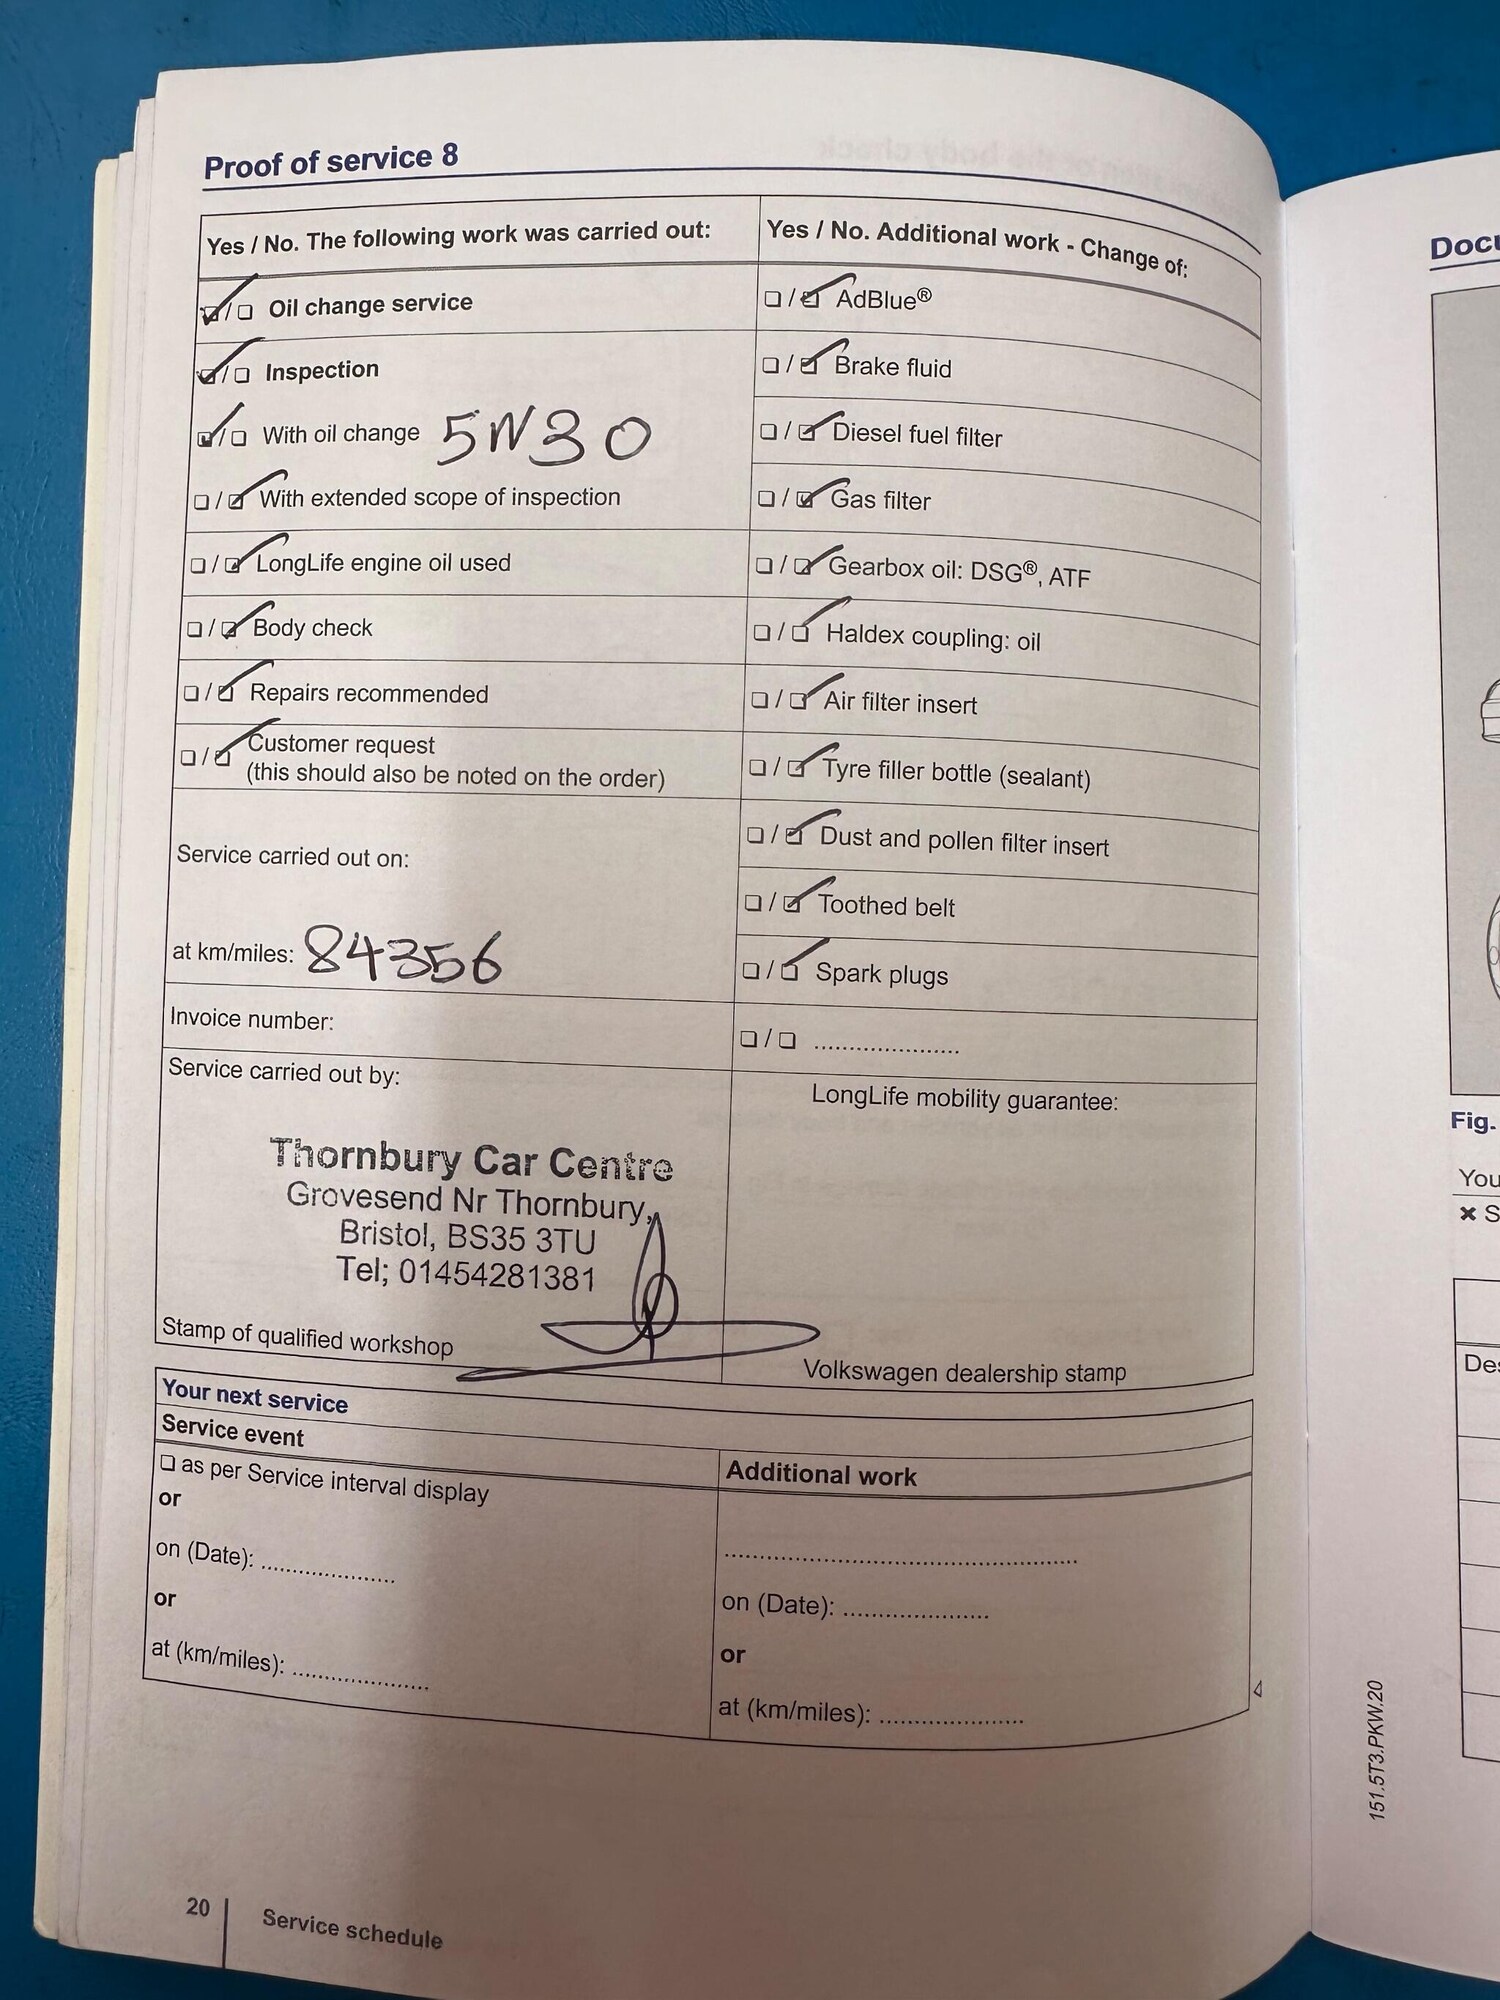 Proof of service 8
Yes / No. The following work was carried out:
Oil change service
Inspection
With oil change 5W30
With extended scope of inspection
LongLife engine oil used
Body check
Repairs recommended
Customer request
(this should also be noted on the order)
Service carried out on:
at km/miles: 84356
Invoice number:
Service carried out by:
Thornbury Car Centre
Grovesend Nr Thornbury,
Bristol, BS35 3TU
Tel; 01454281381
Stamp of qualified workshop
Yes / No. Additional work - Change of:
AdBlue®
Brake fluid
Diesel fuel filter
Gas filter
Gearbox oil: DSG®, ATF
Haldex coupling: oil
Air filter insert
Tyre filler bottle (sealant)
Dust and pollen filter insert
Toothed belt
Spark plugs
LongLife mobility guarantee:
Volkswagen dealership stamp
Your next service
Service event
as per Service interval display
or
on (Date): ....................
or
at (km/miles): ....................
Additional work
on (Date): ....................
or
at (km/miles): ....................
20
Service schedule
Fig.
You
151.5T3.PKW.20